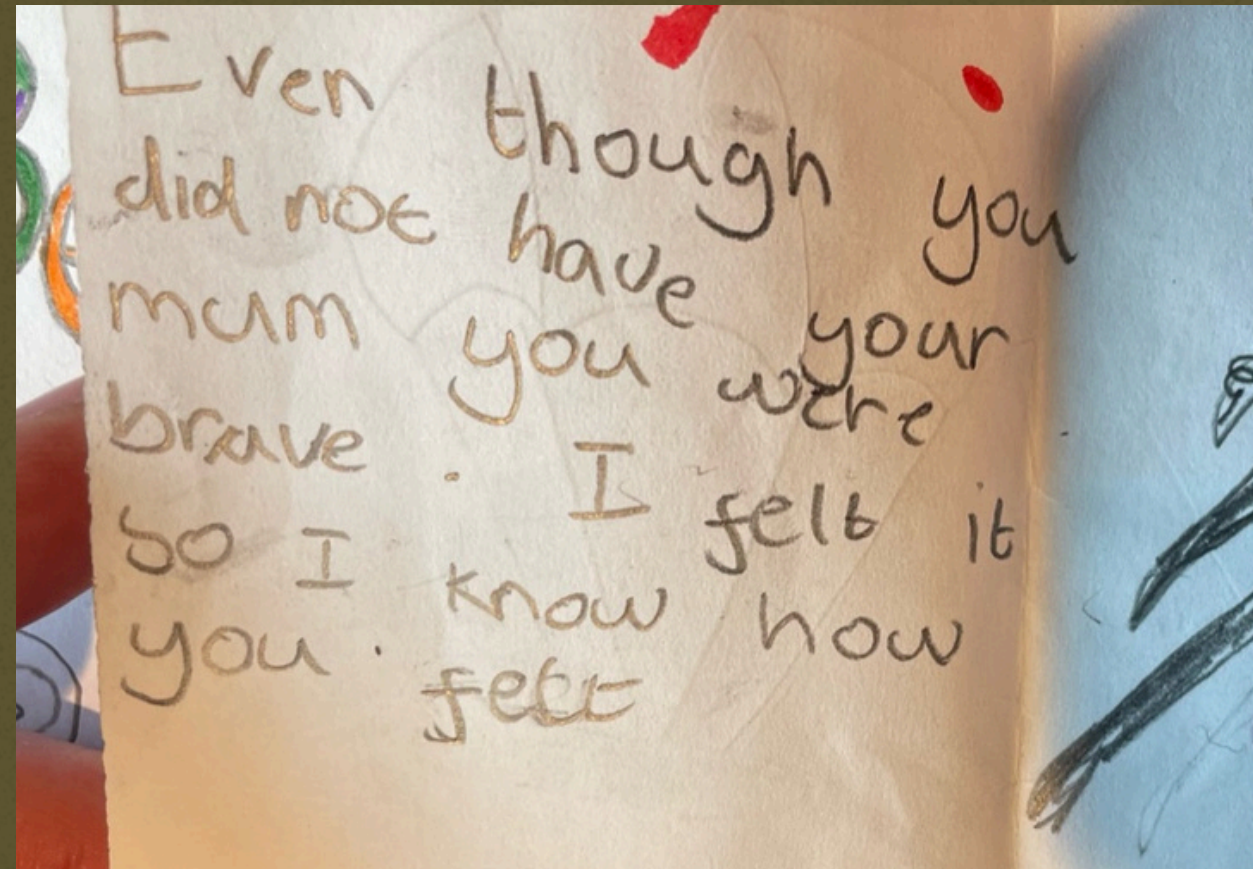 Even though you
did not have your
mum you were
brave. I felt it
so I know how
you. felt